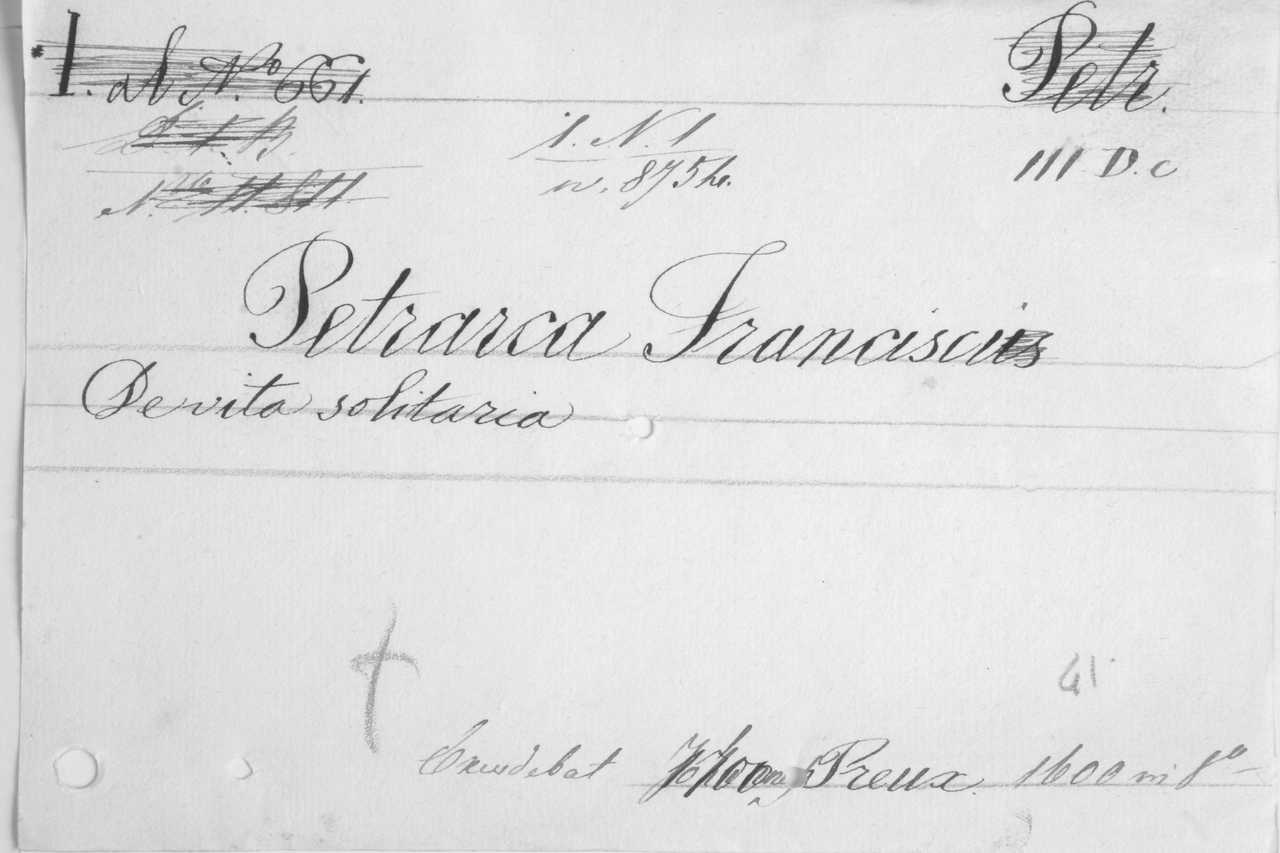 I. ab No 661. Petr.
1. N. 1 III D. c
n. 875
Petrarca Franciscus
De vita solitaria
41
Excudebat Preux 1600 in 8o